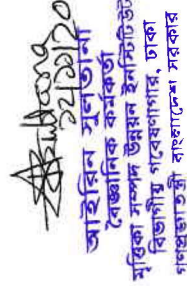 ১২/১১/২০
আইরিন সুলতানা
বৈজ্ঞানিক কর্মকর্তা
মৃত্তিকা সম্পদ উন্নয়ন ইনস্টিটিউট
বিভাগীয় গবেষণাগার, ঢাকা
গণপ্রজাতন্ত্রী বাংলাদেশ সরকার